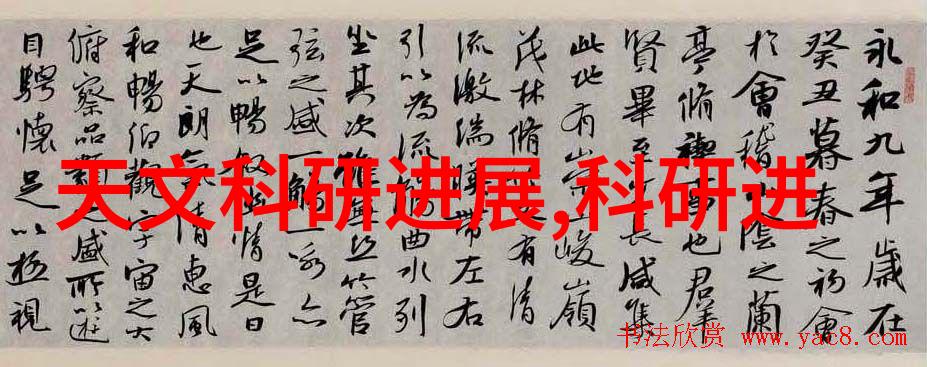 永和九年歲在
癸丑暮春之初會
於會稽山陰之蘭
亭脩禊事也羣
賢畢至少長咸集
此地有崇山峻嶺
茂林脩有清
流激湍暎帶左右
引以為流觴曲水列
坐其次雖無絲竹管
弦之盛一觴一詠亦
足以暢敘幽情是日
也天朗氣清惠風
和暢仰觀宇宙之大
俯察品類之盛所以遊
目騁懷足以極視
天文科研进展,科研进
书法欣赏
www.yac8.com